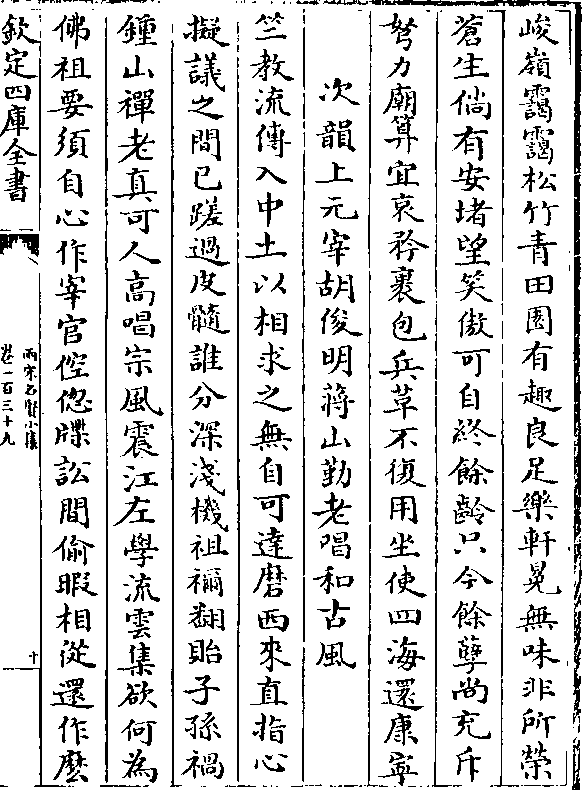 峻嶺靄靄松竹青田園有趣良足樂軒冕無味非所榮
蒼生倘有安堵望笑傲可自終餘齡只今餘孽尚充斥
努力廟算宜哀矜裹包兵革不復用坐使四海還康寧
次韻上元宰胡俊明蔣山勤老唱和古風
竺教流傳入中土以相求之無自可達磨西來直指心
擬議之間已蹉過皮髓誰分深淺機祖禰翻貽子孫禍
鍾山禪老真可人高唱宗風震江左學流雲集欲何為
佛祖要須自心作宰官倥偬牒訟間偷暇相從還作麽
欽定四庫全書
兩宋名賢小集
卷一百三十九
十